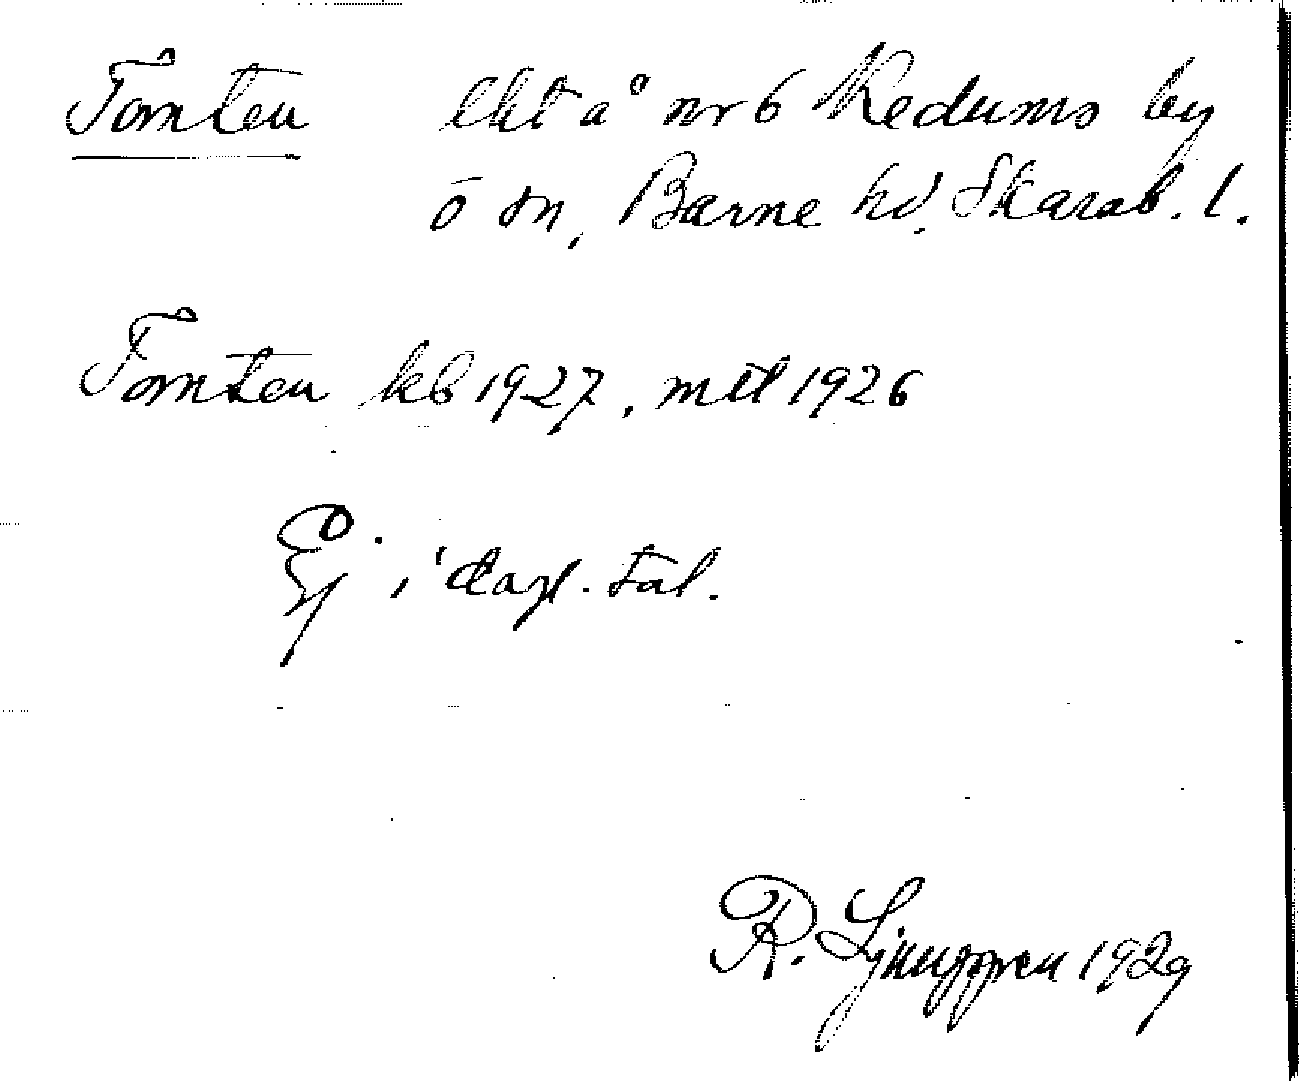 Tomten lht å nr 6 Redums by
ö sn, Barne hd. Skarab. l.
Tomten kb 1927, mtl 1926
Ej i dagl. tal.
R. Ljunggren 1929